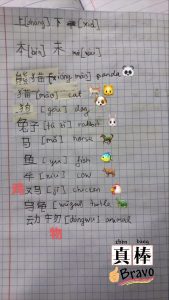 上[shàng] 下 [xià]
本[běn] 末 [mò]
熊猫[xióng māo] panda
猫[māo] cat
狗 [gǒu] dog
兔子[tù zi] rabbit
马 [mǎ] horse
鱼 [yú] fish
牛 [niú] cow
鸡 鸡[jī] chicken
乌龟[wūguī] turtle
动物[dòngwù] animal
物
zhēn bàng
真棒
Bravo